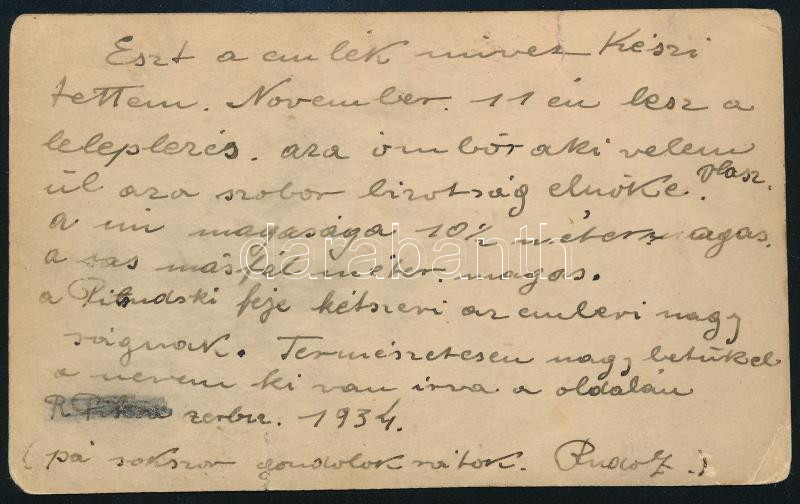 Eszt a emlék mivez Készi
tettem. November. 11 én lesz a
leleplezés. aza ömbör aki velem
ül aza szobor bizotság elnöke. Vlasz.
a mi magasága 10½ méter magas.
a sas másfél méter. magas.
a Pilsudski feje kétszeri az emberi nagy
ságnak. Termeszetesen nagy betükel
a nevem ki van irva a oldalán
R. zerbu. 1934.
( pá sokszor gondolok rátok. Rudolf.)
darabanth